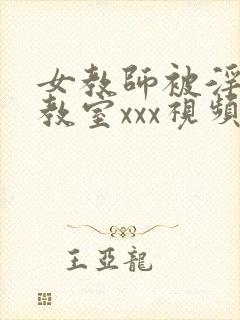 女教師被淫
教室xxx視頻
王亞龍